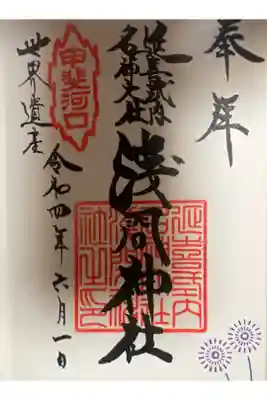 奉拜
延喜式内
名神大社
淺間神社
甲斐河口
世界遺産
令和四年六月一日